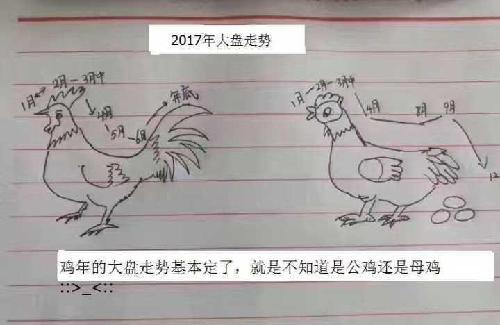 2017年大盘走势
1月
2月-3月中
4月
5月-6月
年底
1月-2月-3月中
4月
8月
9月
12
鸡年的大盘走势基本定了，就是不知道是公鸡还是母鸡
::>_<::